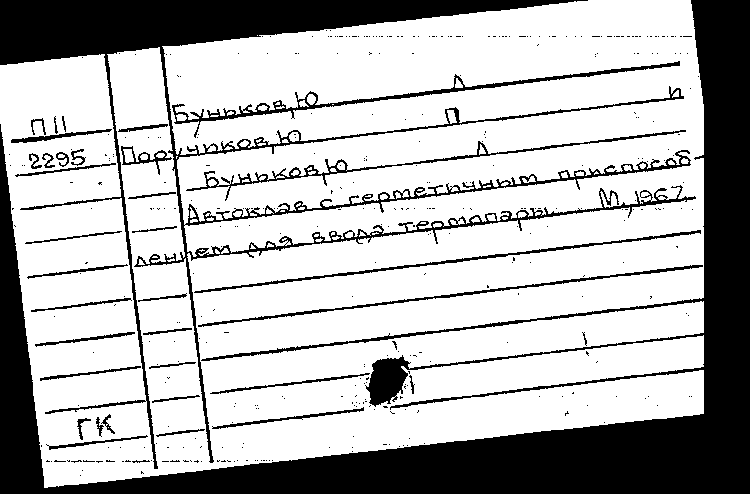 Буньков,Ю Л
П11
Поручиков,Ю П и
2295
Буньков,Ю Л
Автоклав с герметичным приспособ
лением для ввода термопары. М,1967
ГК